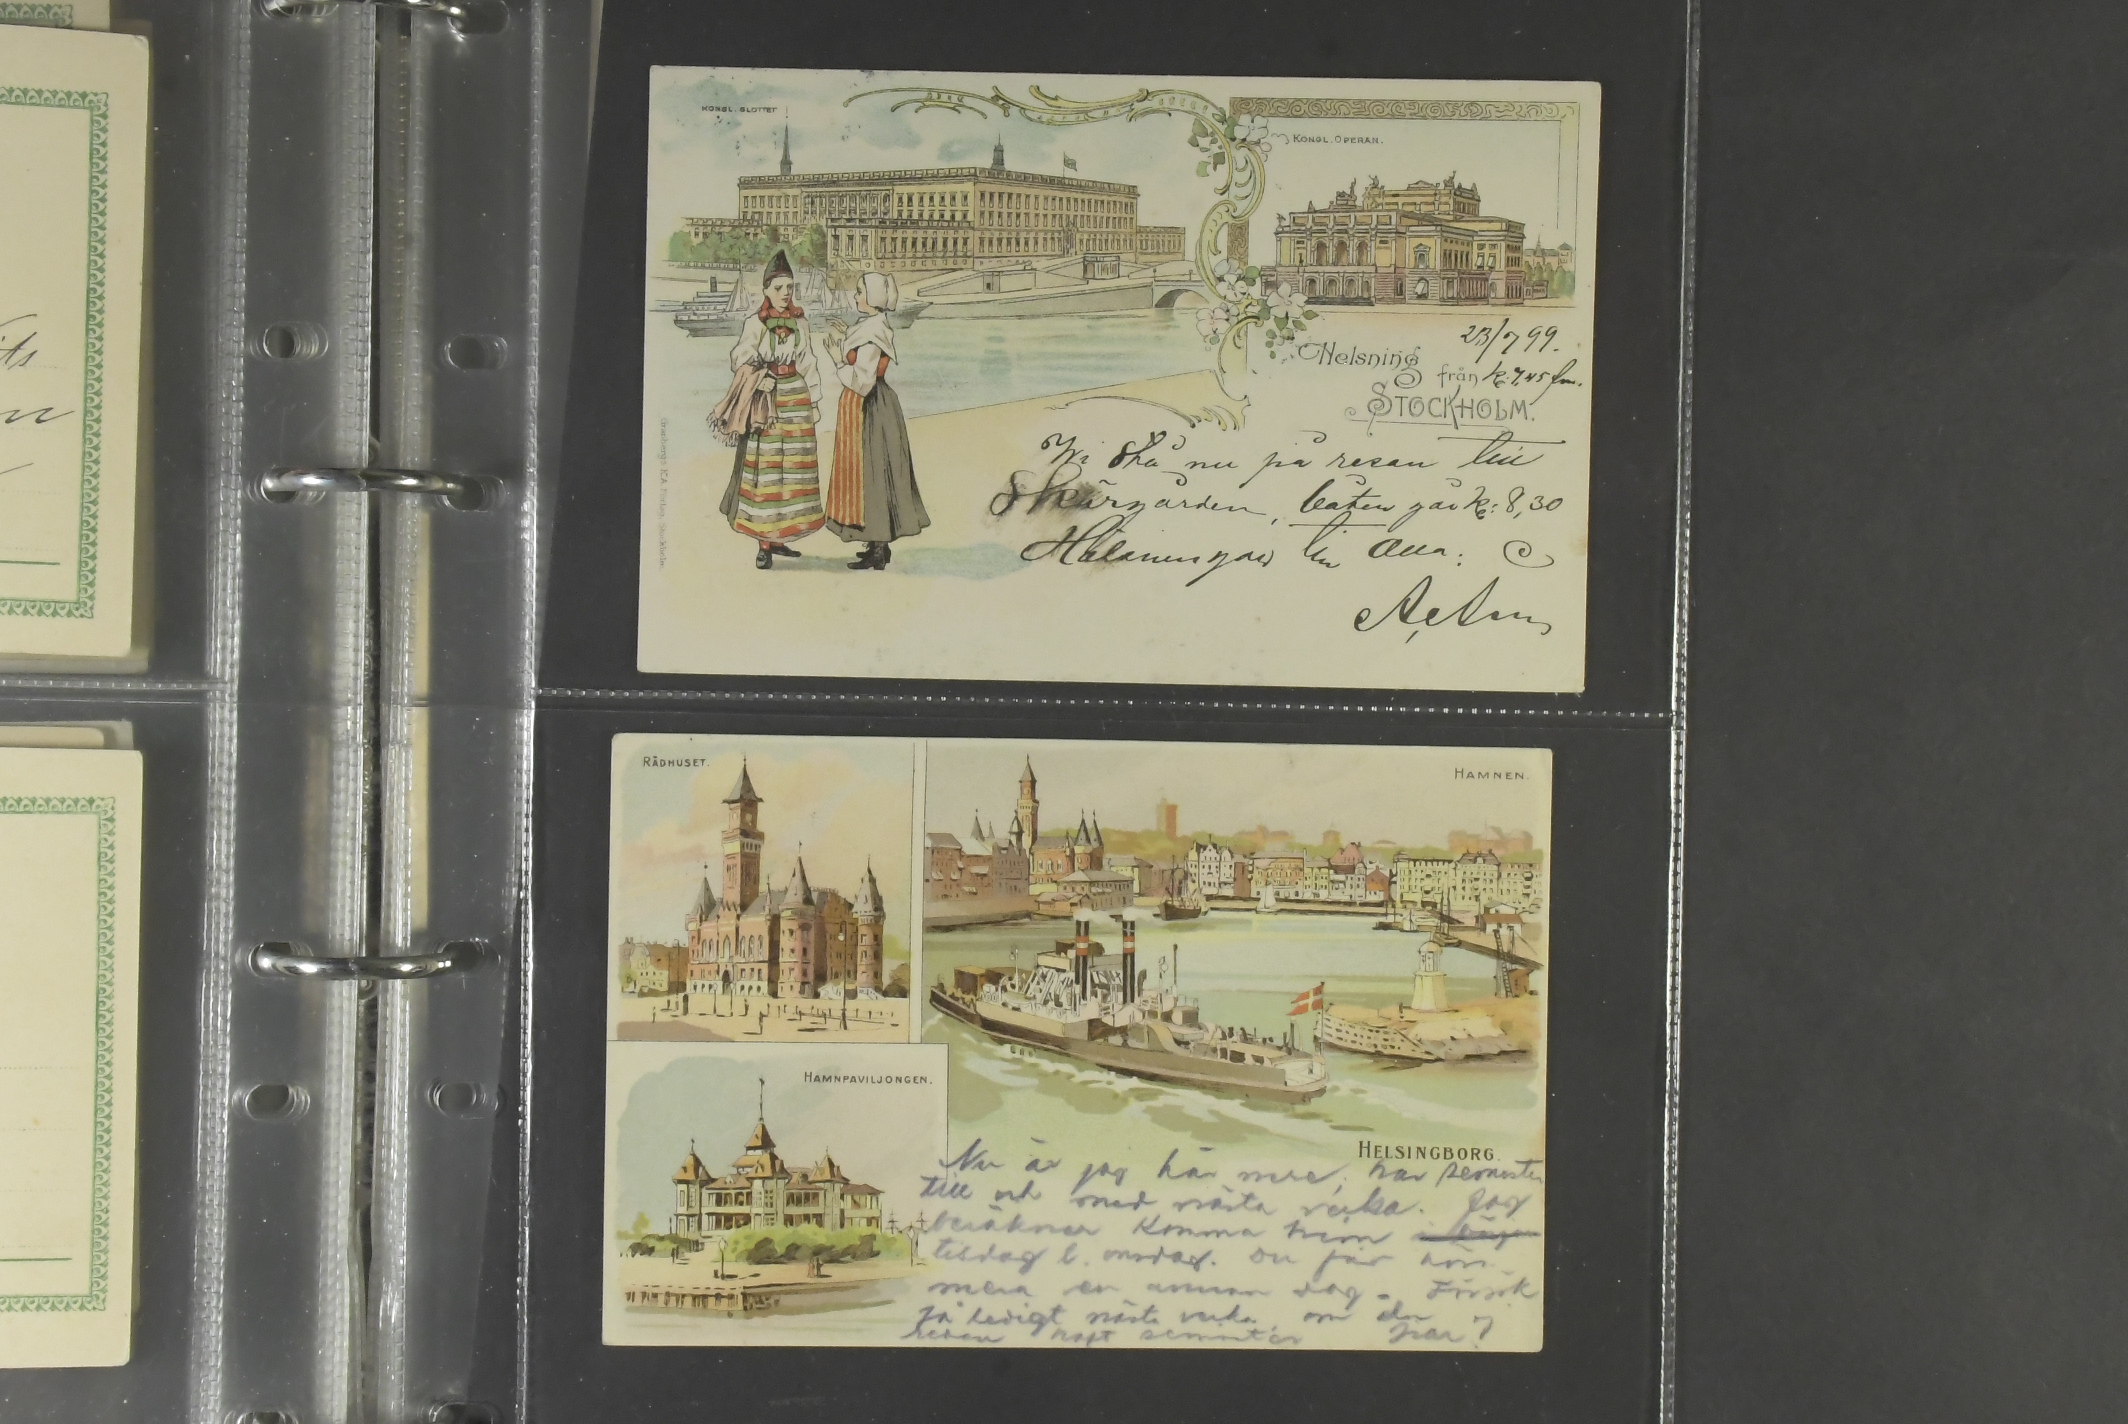 KONGL. SLOTTET
KONGL. OPERAN.
23/7 99.
Helsning
från k. 7,45 fm.
STOCKHOLM.
Wi stå nu på resan till
Skärgården, båten går k: 8,30
Hälsningar till Alla.
Granbergs K.A. Förlag. Stockholm.
RÅDHUSET.
HAMNEN.
HAMNPAVILJONGEN.
HELSINGBORG.
Nu är jag här nere, har semester
till och med nästa vecka. Jag
beräknar komma hem
tisdag l. onsdag. Du får höra
mera en annan dag. Försök
få ledigt nästa vecka, om du har
redan haft semester ?